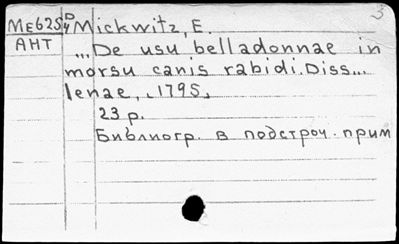 3
МЕ625 D/4 Mickwitz, E.
АНТ
„De usu belladonnae in
morsu canis rabidi. Diss...
Ienae, 1795,
23 p.
Библиогр. в подстроч. прим